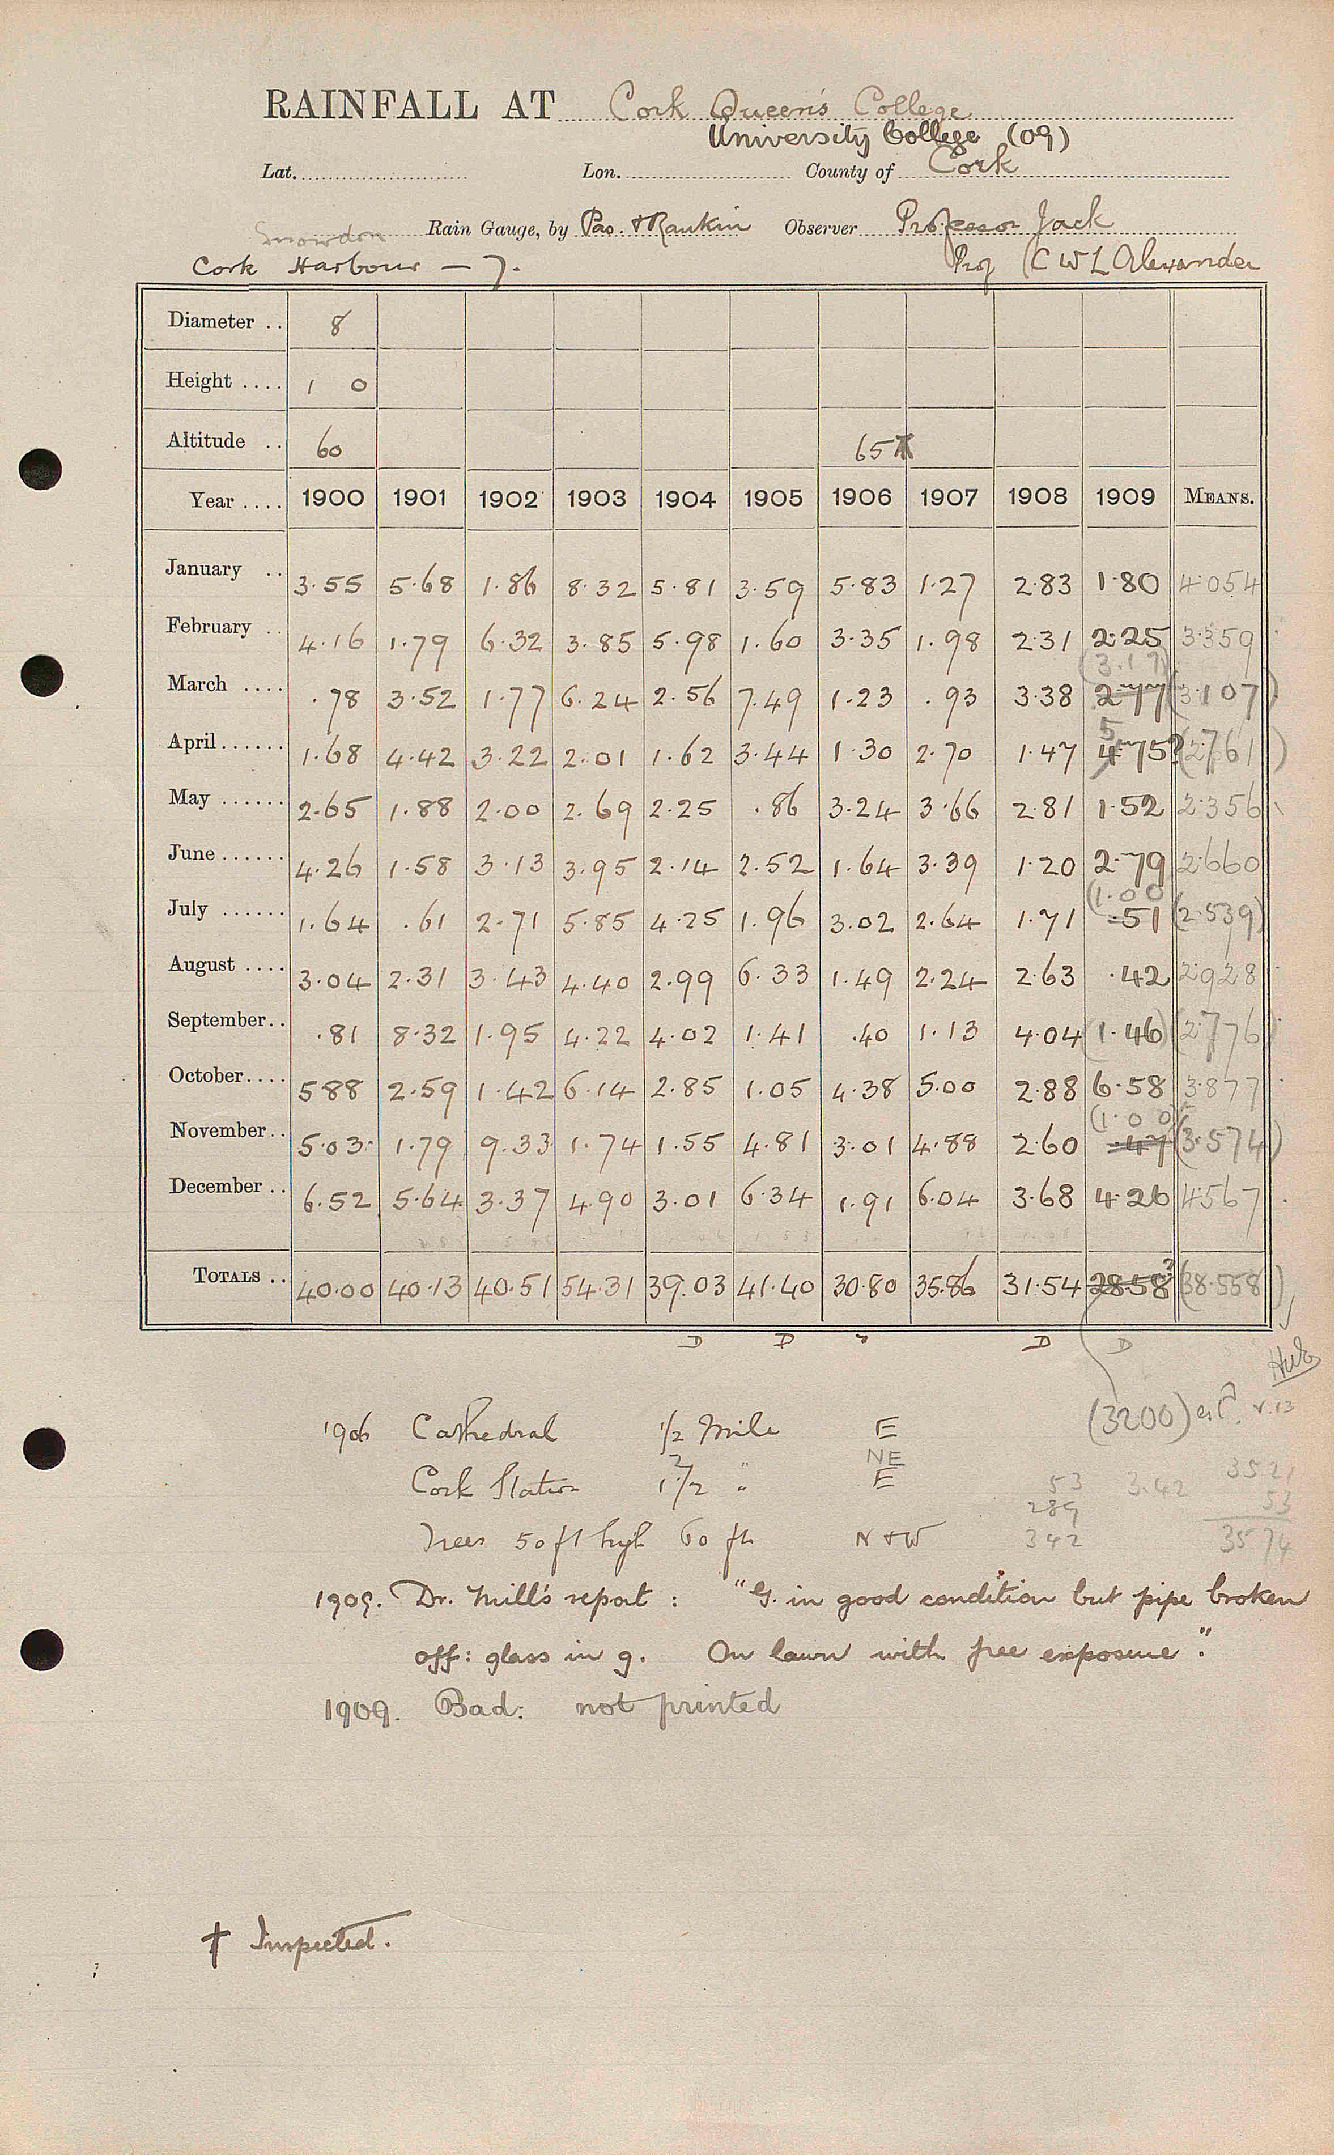 RAINFALL AT Cork Queen's College
University College (09)
Lat. Lon. County of Cork
Snowdon Rain Gauge, by Pas. & Rankin Observer Professor Jack
Cork Harbour — 7. Prof C W L Alexander
Diameter .. 8
Height .... 1 0
Altitude .. 60 65
Year .... 1900 1901 1902 1903 1904 1905 1906 1907 1908 1909 MEANS.
January .. 3.55 5.68 1.86 8.32 5.81 3.59 5.83 1.27 2.83 1.80 4.054
February .. 4.16 1.79 6.32 3.85 5.98 1.60 3.35 1.98 2.31 2.25 3.359
(3.17)
March .... .78 3.52 1.77 6.24 2.56 7.49 1.23 .93 3.38 2.77 (3.107)
5
April ...... 1.68 4.42 3.22 2.01 1.62 3.44 1.30 2.70 1.47 4.75? (2.761)
May ...... 2.65 1.88 2.00 2.69 2.25 .86 3.24 3.66 2.81 1.52 2.356
June ...... 4.26 1.58 3.13 3.95 2.14 2.52 1.64 3.39 1.20 2.79 2.660
(1.00)
July ...... 1.64 .61 2.71 5.85 4.25 1.96 3.02 2.64 1.71 .51 (2.539)
August .... 3.04 2.31 3.43 4.40 2.99 6.33 1.49 2.24 2.63 .42 2.928
September.. .81 8.32 1.95 4.22 4.02 1.41 .40 1.13 4.04 (1.46) (2.776)
October.... 5.88 2.59 1.42 6.14 2.85 1.05 4.38 5.00 2.88 6.58 3.877
(1.00)
November.. 5.03 1.79 9.33 1.74 1.55 4.81 3.01 4.88 2.60 .47 (3.574)
December .. 6.52 5.64 3.37 4.90 3.01 6.34 1.91 6.04 3.68 4.26 4.567
TOTALS .. 40.00 40.13 40.51 54.31 39.03 41.40 30.80 35.86 31.54 28.58? (38.558)
D D D D
1906 Cathedral 1/2 Mile E (3200) est.
NE
Cork Station 1 1/2 " E 53 3.42 3521
289 53
Trees 50 ft high 60 ft N & W 342 3574
1909. Dr. Mill's report : "G. in good condition but pipe broken
off: glass in g. On lawn with free exposure."
1909. Bad: not printed
† Inspected.